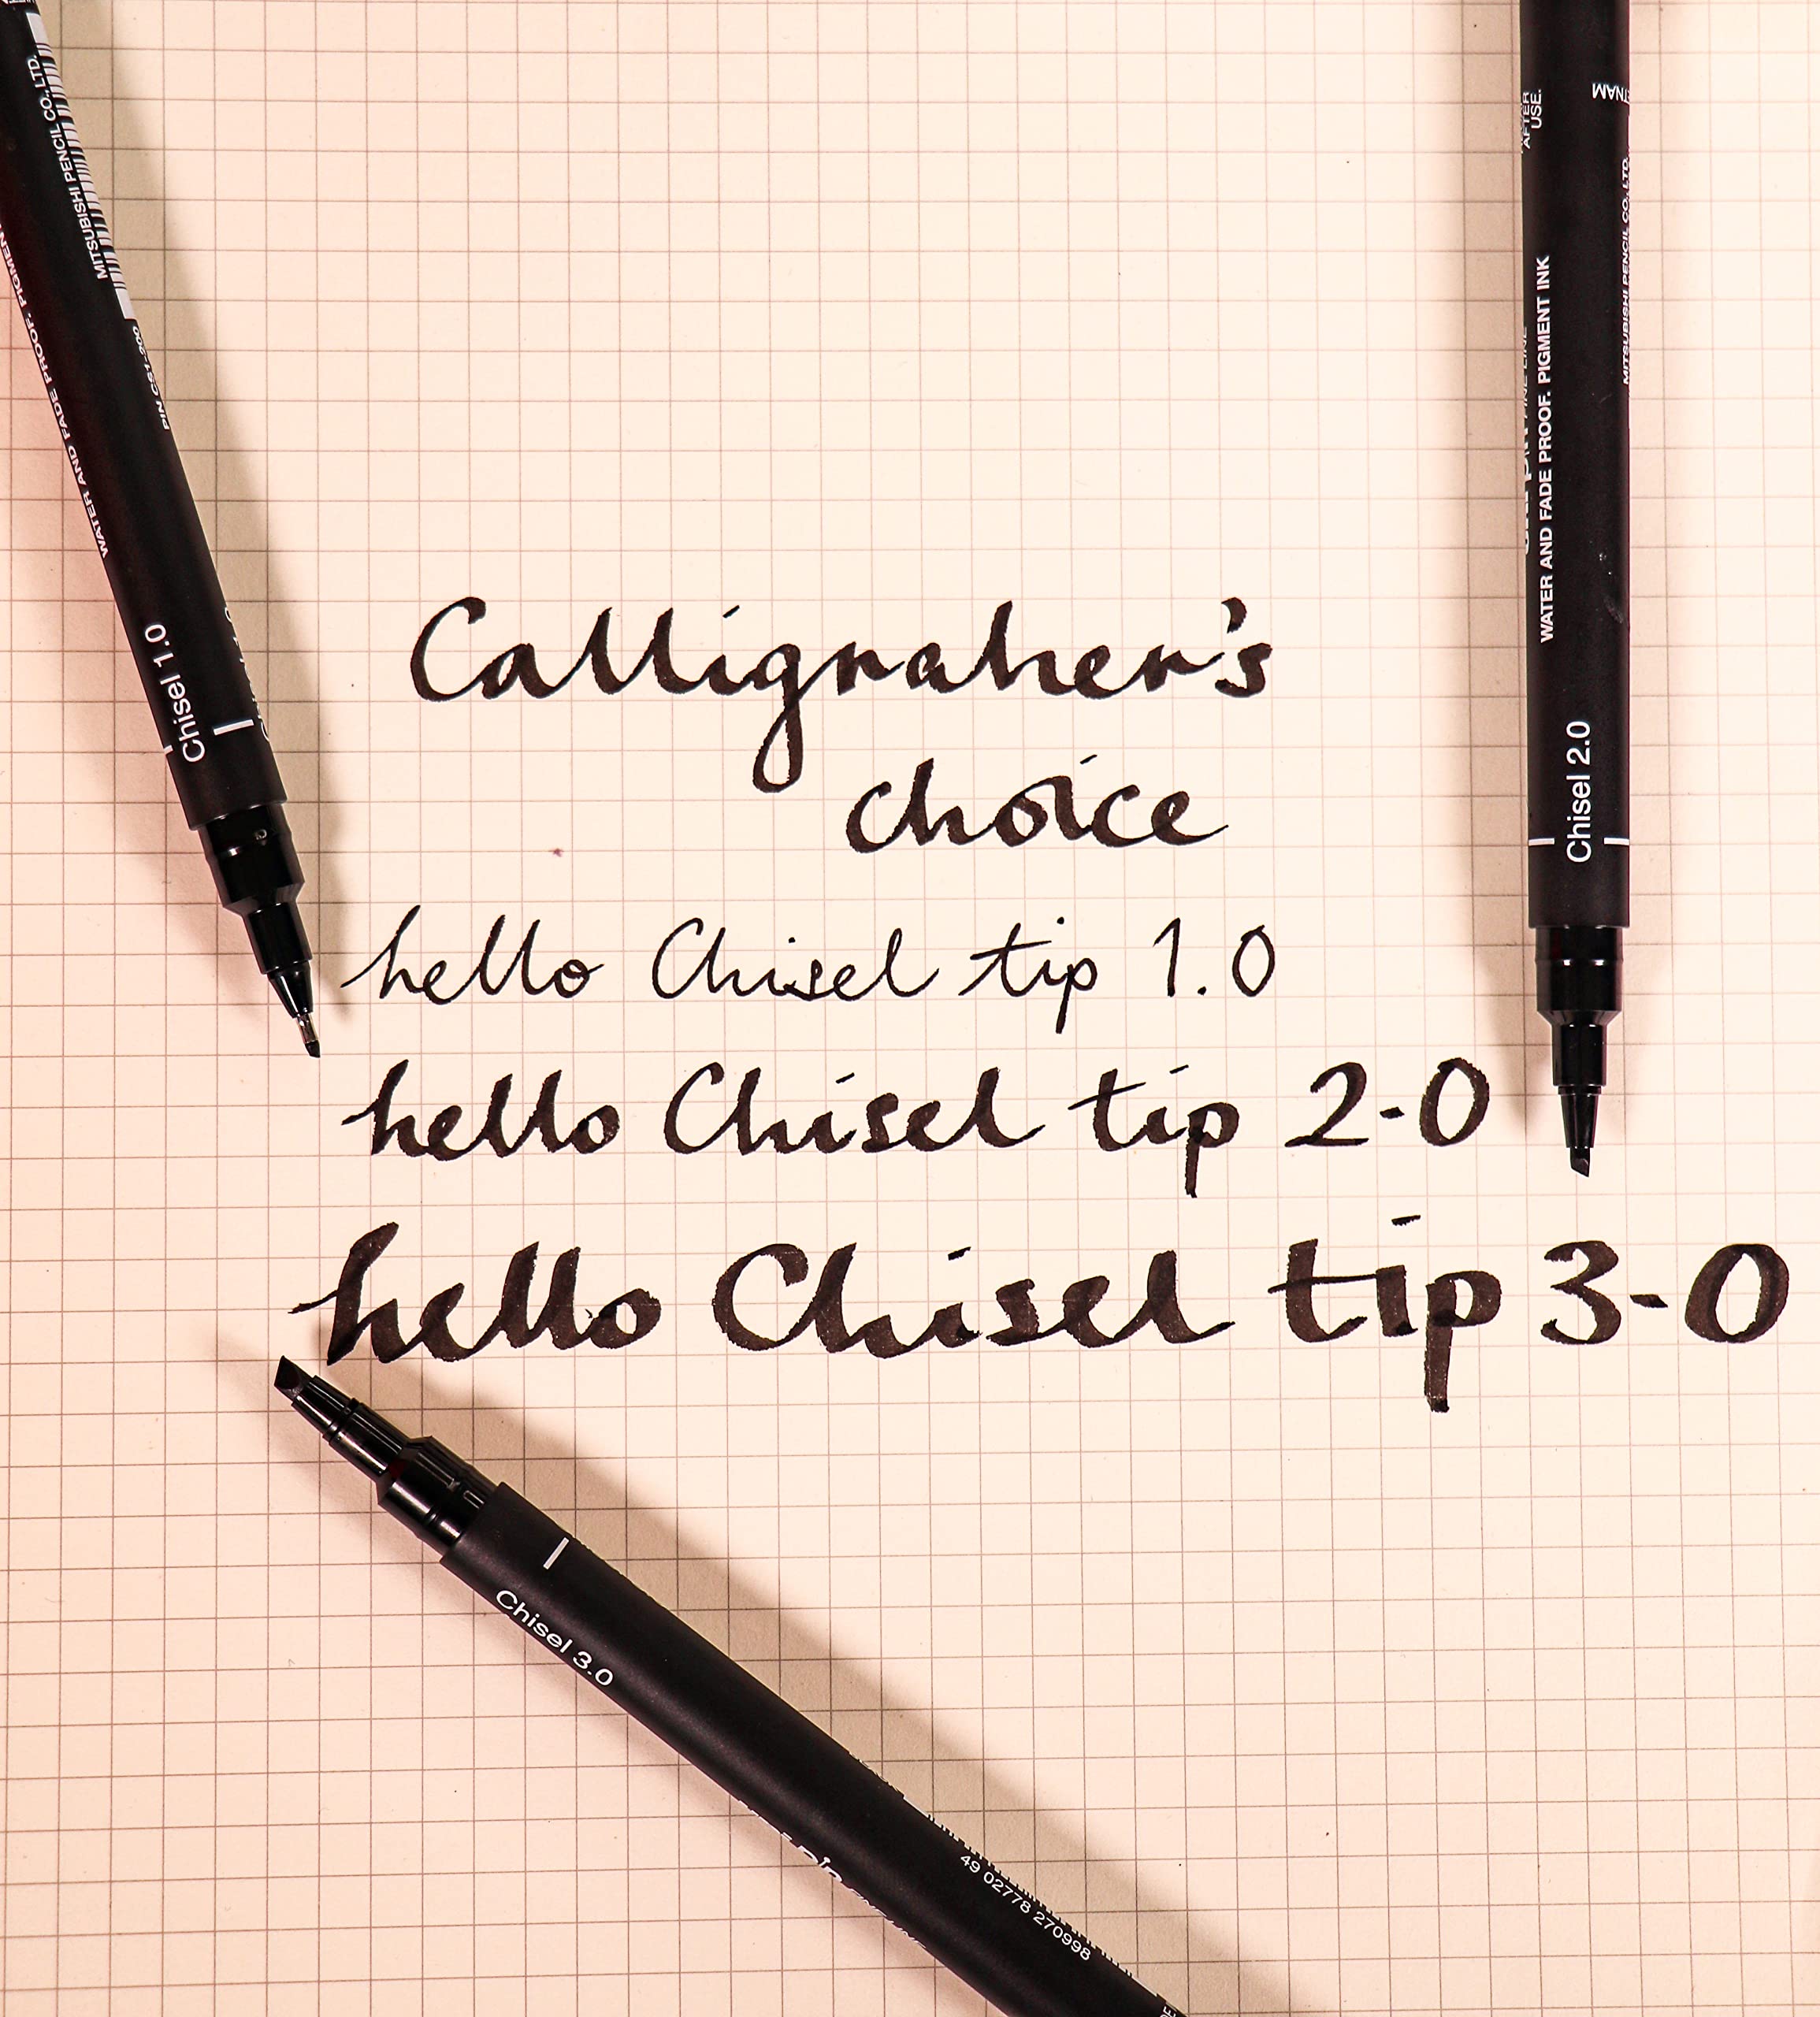 MITSUBISHI PENCIL CO., LTD.
WATER AND FADE PROOF. PIGMENT
PIN CS1-200
Chisel 1.0
AFTER
USE.
MITSUBISHI PENCIL CO., LTD.
WATER AND FADE PROOF. PIGMENT INK
Chisel 2.0
Calligraher's
choice
hello Chisel tip 1.0
hello Chisel tip 2-0
hello Chisel tip 3-0
Chisel 3.0
49 02778 270998